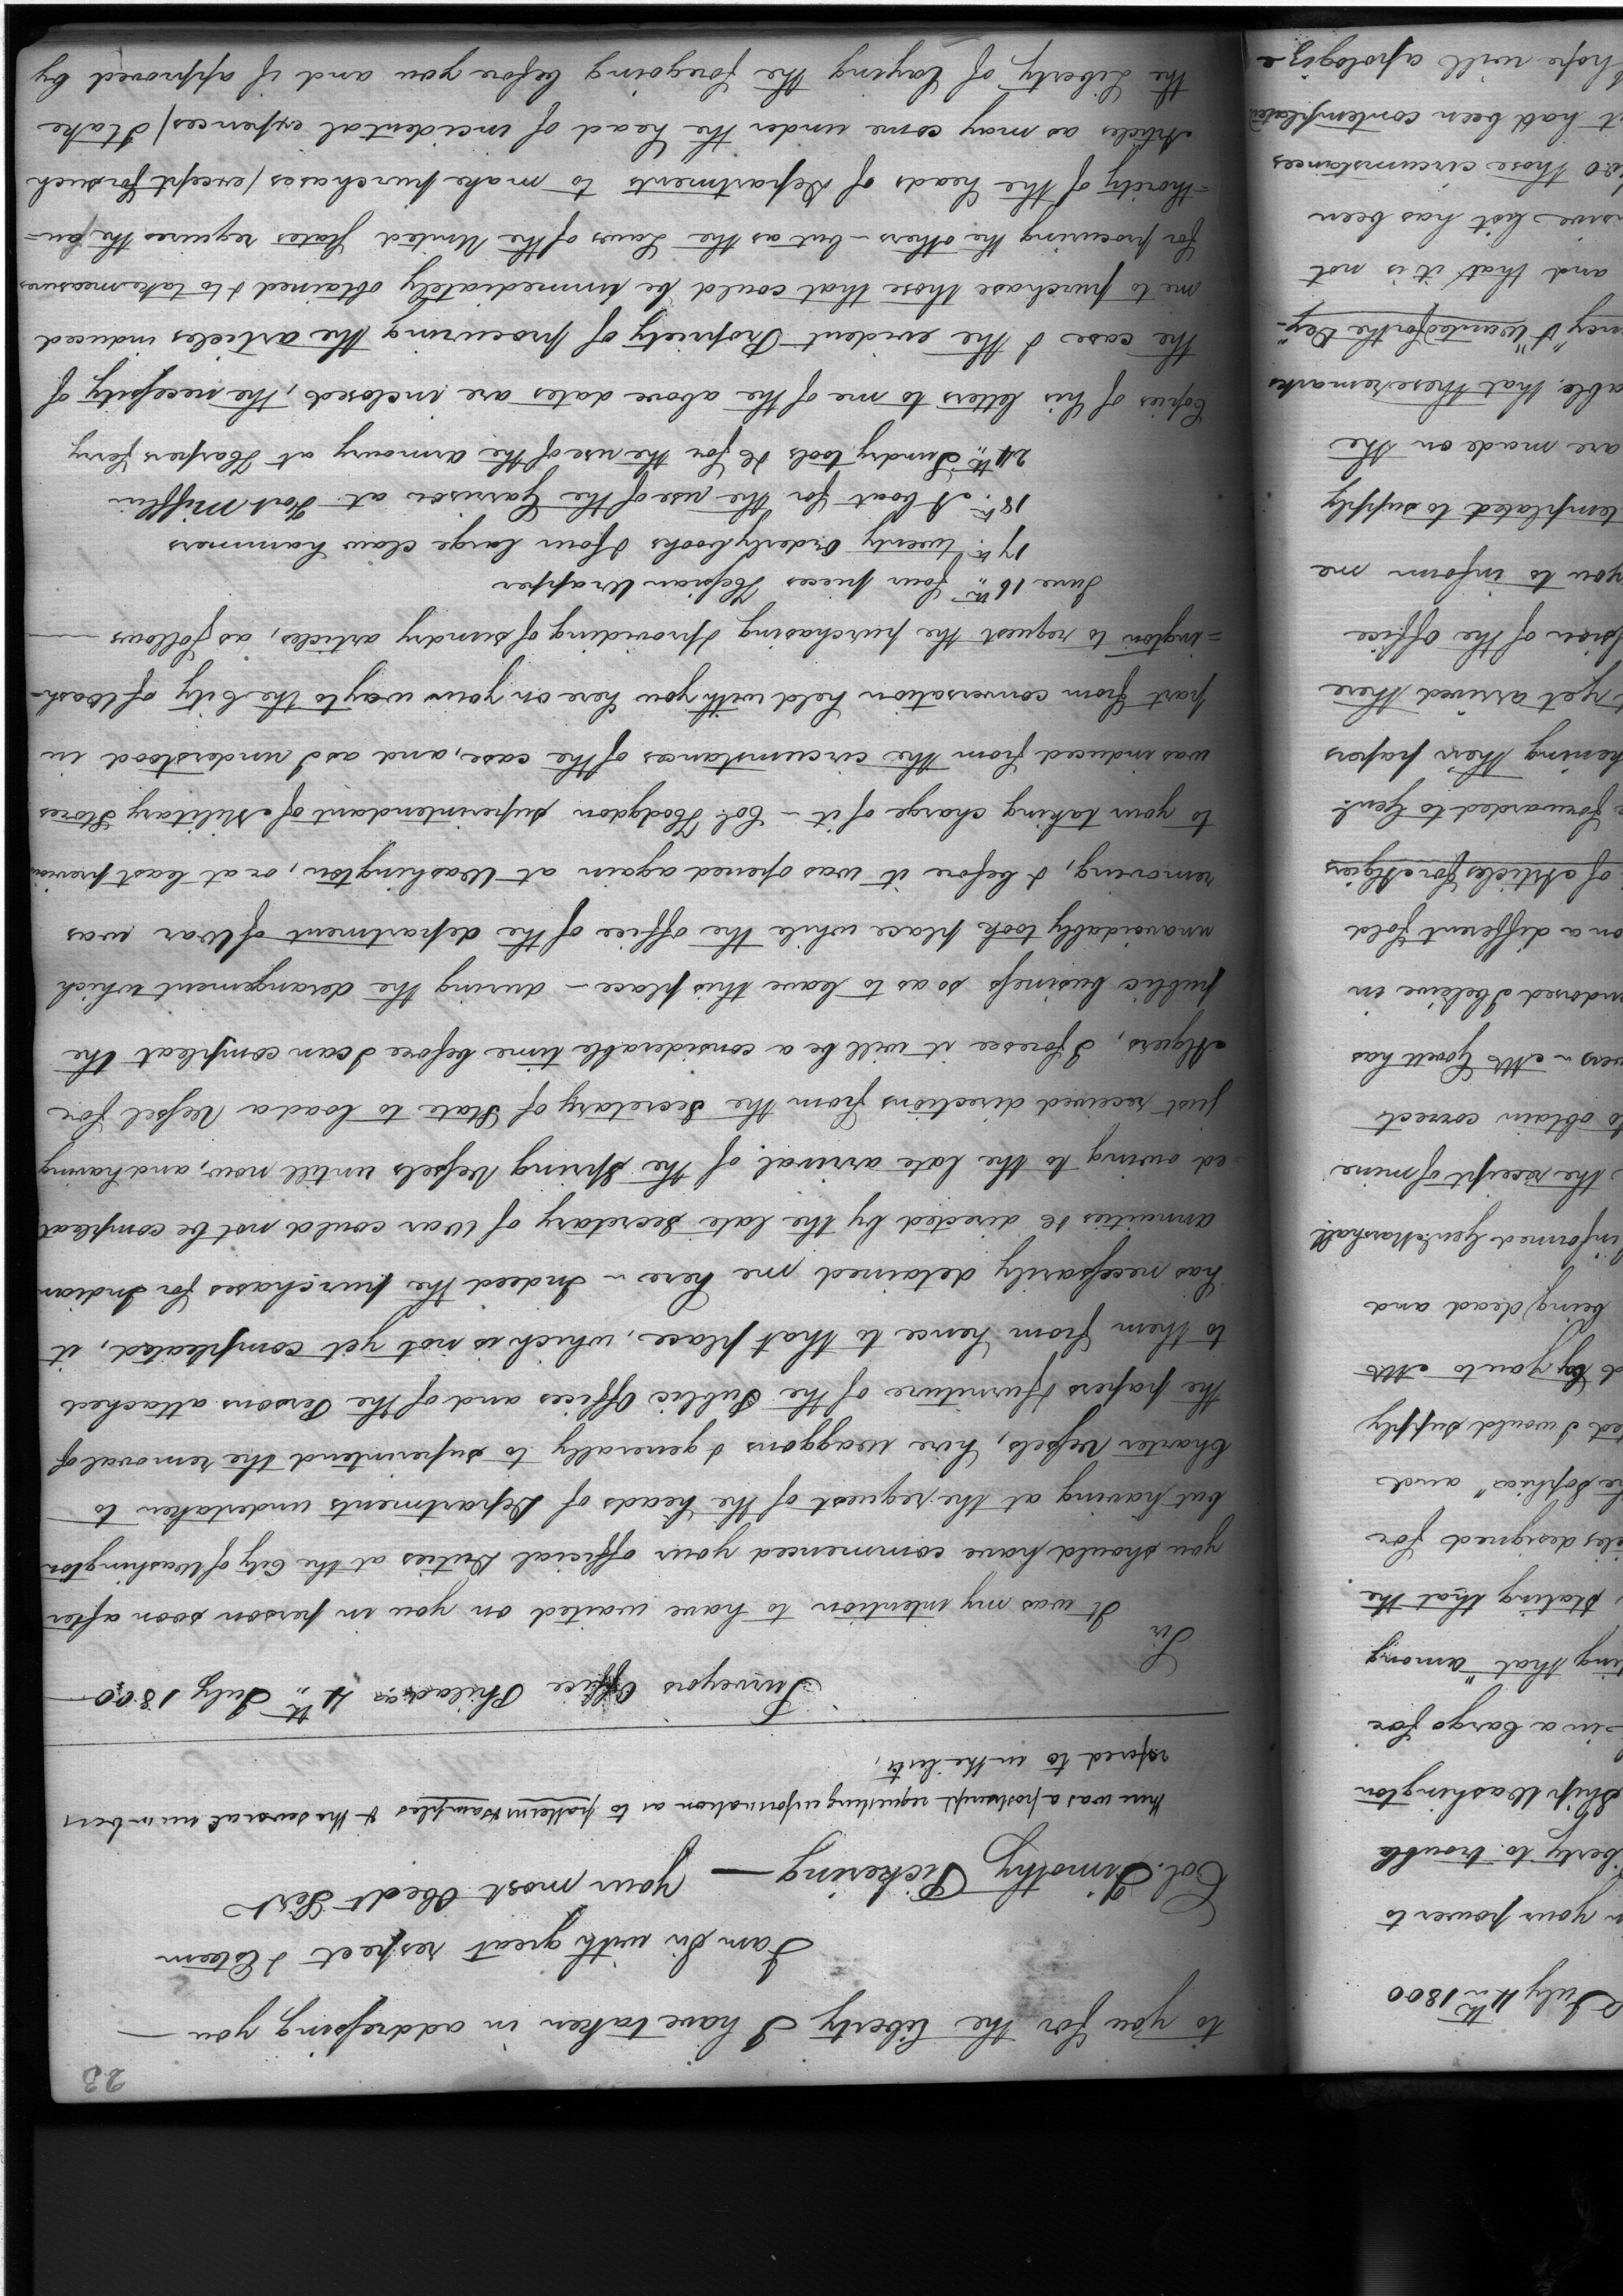 July 4th 1800
your power to
liberty to trouble
Ship Washington
in a Cargo for
that "among
stating that the
designed for
Sophia" and
I would supply
by you to Mr
being dead and
informed Genl. Marshall
the receipt of mine
to obtain correct
Mr Govett has
endorsed I believe in
on a different fold
of Articles for Algiers
forwarded to Genl.
their papers
yet arrived there
of the office
you to inform me
to supply
are made on the
that these remarks
& "wanted for the Dey"
and that it is not
list has been
those circumstances
it had been contemplated
hope will apologize
23
to you for the liberty I have taken in addressing you —
I am Sir with great respect & Esteem
Col. Timothy Pickering — your most Obedt Servt
there was a postscript requesting information as to patterns & samples & the several numbers
refered to in the lists,
Surveyors Office Philada 4th July 1800
Sir
It was my intention to have waited on you in person soon after
you should have commenced your official Duties at the City of Washington
but having at the request of the heads of Departments undertaken to
Charter Vessels, hire waggons & generally to superintend the removal of
the papers & furniture of the Public Offices and of the Persons attached
to them from hence to that place, which is not yet compleated, it
has necessarily detained me here - Indeed the purchases for Indian
annuities &c directed by the late Secretary of War could not be compleat
=ed owing to the late arrival of the Spring Vessels untill now, and having
just received directions from the Secretary of State to load a Vessel for
Algiers, I foresee it will be a considerable time before I can compleat the
public business so as to leave this place - during the derangement which
unavoidably took place while the office of the department of War was
removing, & before it was opened again at Washington, or at least previous
to your taking charge of it - Col. Hodgdon superintendant of Military Stores
was induced from the circumstances of the case, and as I understood in
part from conversation held with you here on your way to the City of Wash-
=ington to request the purchasing & providing of sundry articles, as follows —
June 16th four pieces Hessian Wrapper
17th twenty Orderly books & four large claw hammers
18th A boat for the use of the Garrison at Fort Mifflin
24th Sundry tools &c for the use of the armoury at Harpers ferry
Copies of his letters to me of the above dates are inclosed, the necessity of
the case & the evident Propriety of procuring the articles induced
me to purchase those that could be immediately obtained & to take measures
for procuring the others - but as the Laws of the United States requires the au=
=thority of the heads of Departments to make purchases (except for such
Articles as may come under the head of incidental expences) I take
the Liberty of laying the foregoing before you and if approved by